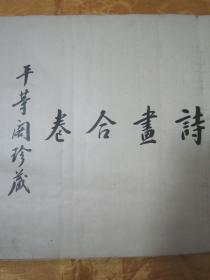 詩畫合卷
平等閣珍藏